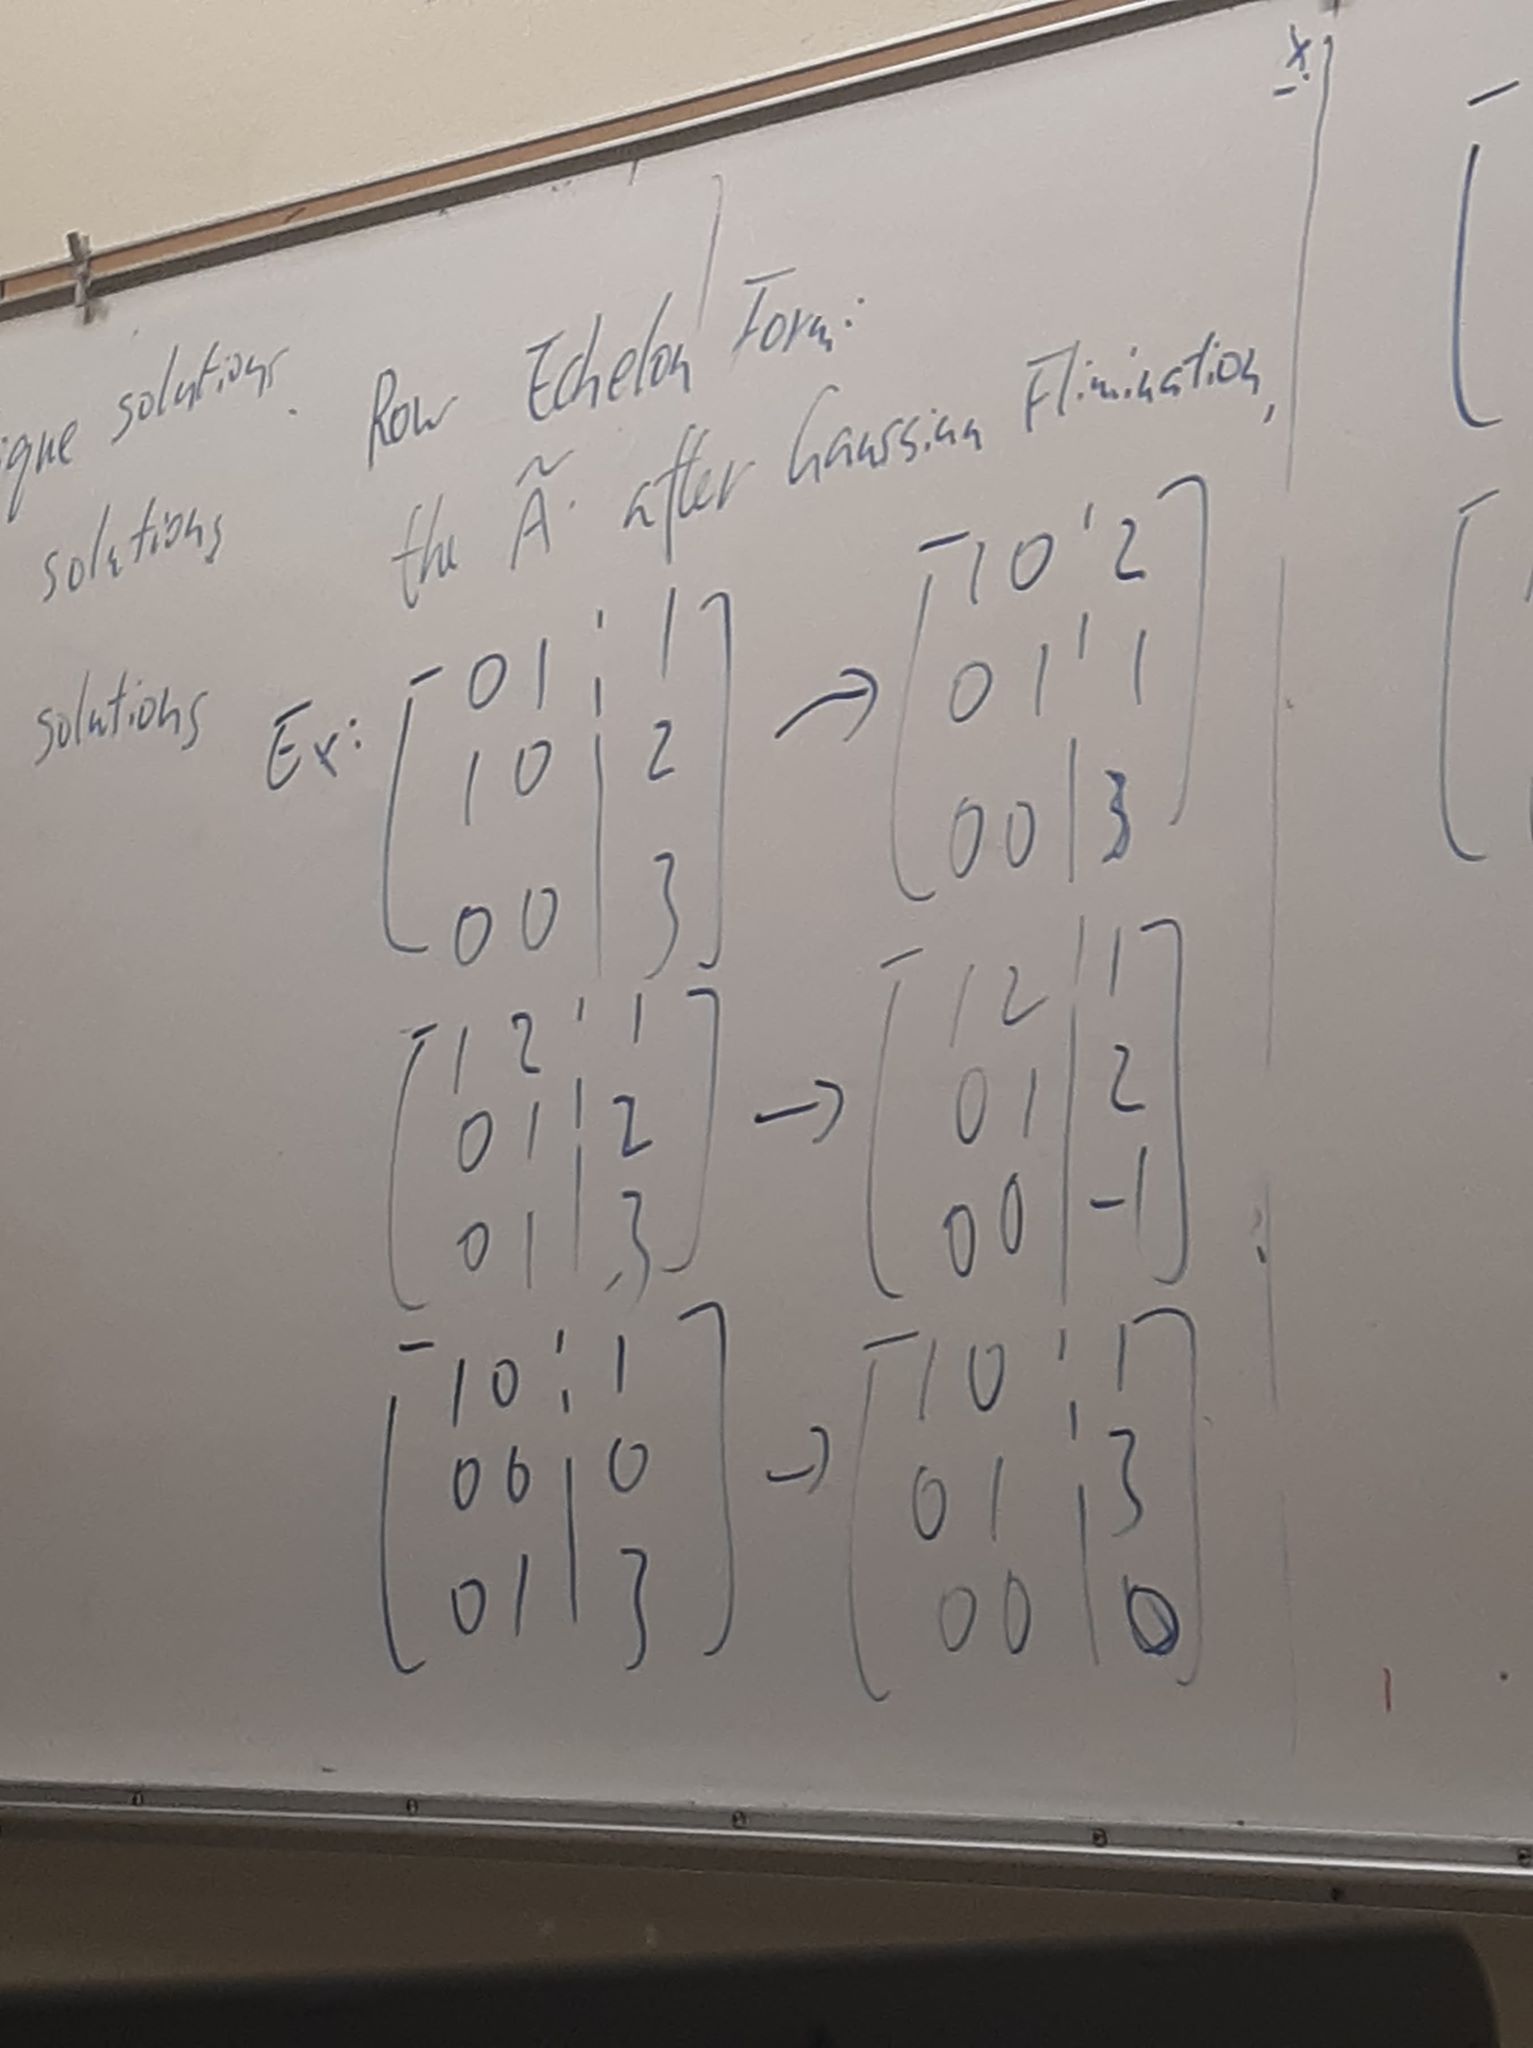 ique solutions.
solutions
solutions
Row Echelon Form:
the Ã. after Gaussian Elimination,
Ex:
[ 0 1 | 1 ] → [ 1 0 | 2 ]
[ 1 0 | 2 ] [ 0 1 | 1 ]
[ 0 0 | 3 ] [ 0 0 | 3 ]
[ 1 2 | 1 ] → [ 1 2 | 1 ]
[ 0 1 | 2 ] [ 0 1 | 2 ]
[ 0 1 | 3 ] [ 0 0 | -1 ]
[ 1 0 | 1 ] → [ 1 0 | 1 ]
[ 0 0 | 0 ] [ 0 1 | 3 ]
[ 0 1 | 3 ] [ 0 0 | 0 ]